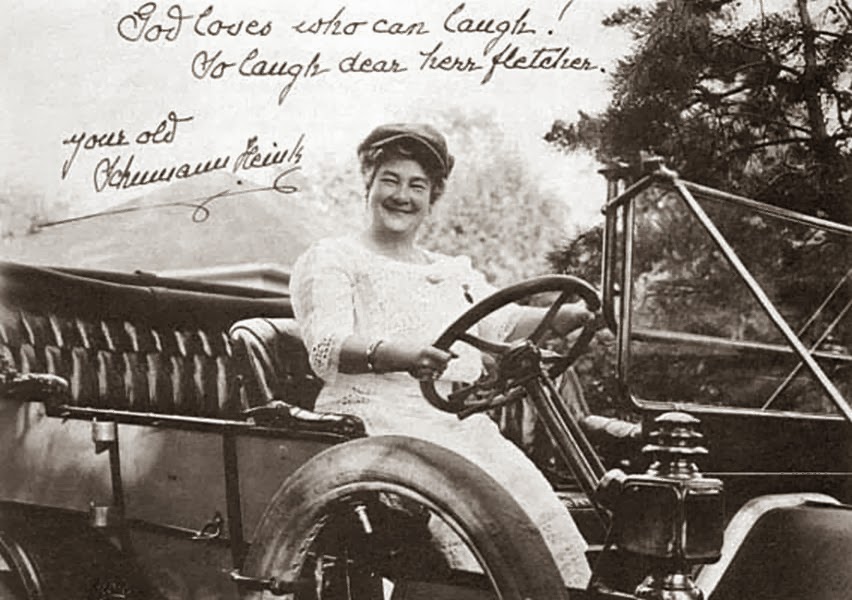 God loves who can laugh!
So laugh dear herr fletcher.
your old
Schumann Heink